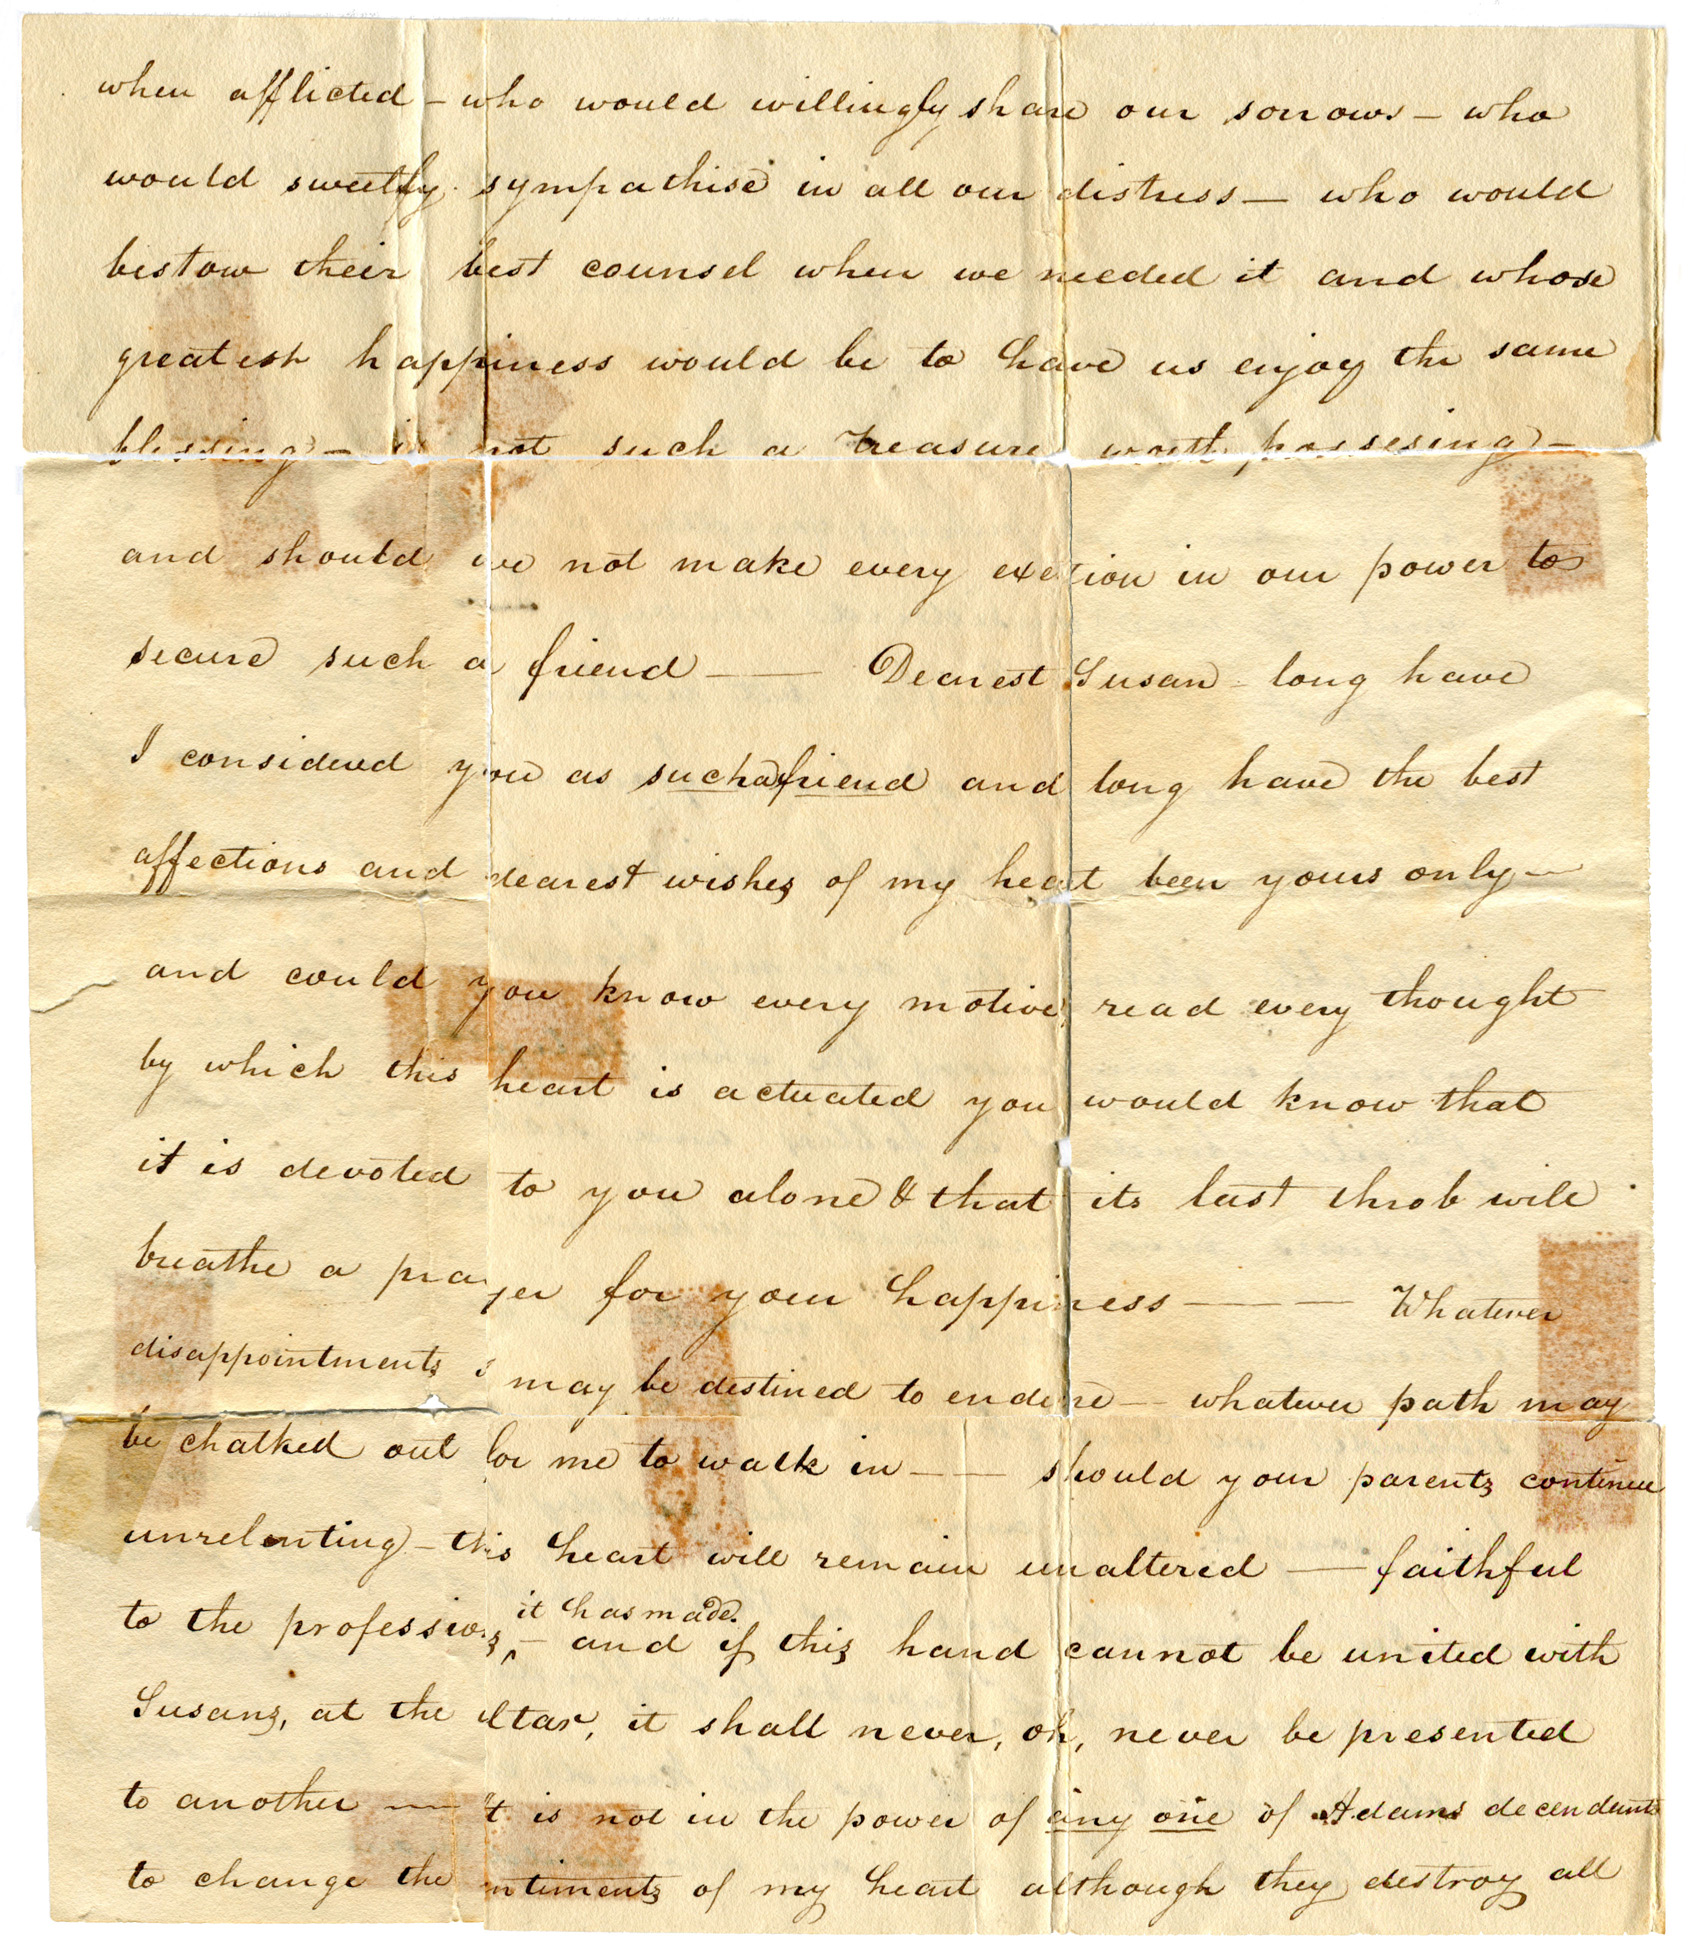 when afflicted – who would willingly share our sorrows – who
would sweetly sympathise in all our distress – who would
bestow their best counsel when we needed it and whose
greatest happiness would be to have us enjoy the same
blessing – is not such a treasure worth possesing –
and should we not make every exetion in our power to
secure such a friend —— Dearest Susan – long have
I considered you as such a friend and long have the best
affections and dearest wishes of my heart been yours only –
and could you know every motive, read every thought
by which this heart is actuated you would know that
it is devoted to you alone & that its last throb will
breathe a prayer for your happiness —— Whatever
disappointments may be destined to endure — whatever path may
be chalked out for me to walk in —— should your parents continue
unrelenting – this heart will remain unaltered — faithful
it has made.
to the professions ^ – and if this hand cannot be united with
Susans, at the altar, it shall never, oh, never be presented
to another — it is not in the power of any one of Adams decendants
to change the sentiments of my heart although they destroy all